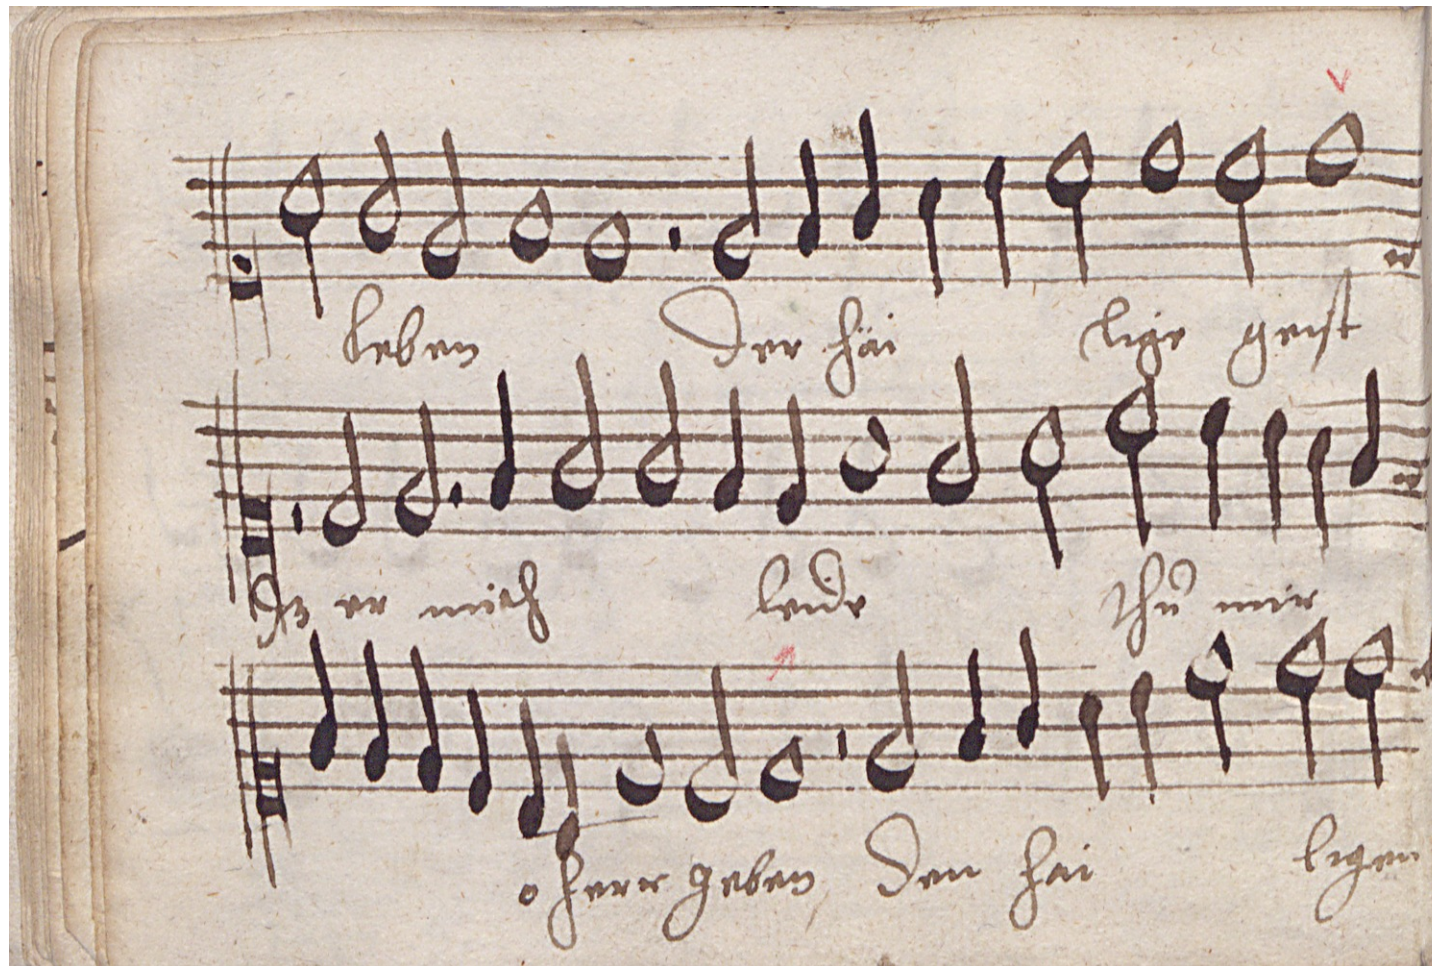 leben Der häi lige geist
Dz er mich leide thů mir
o herr geben Den hai ligen